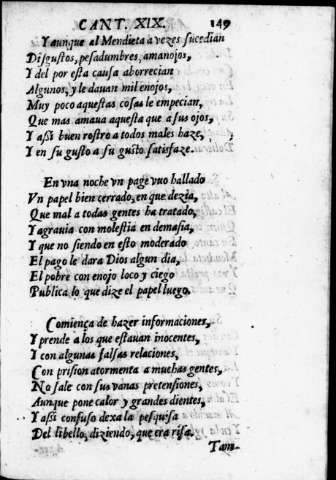 CANT. XIX. 149
Y aunque al Mendieta à vezes sucedian
Disgustos, pesadumbres, amanojos,
Y del por esta causa aborrecian
Algunos, y le dauan mil enojos,
Muy poco aquestas cosas le empecian,
Que mas amaua aquesta que a sus ojos,
Y assi buen rostro a todos males haze,
Y en su gusto a su gusto satisfaze.
En vna noche vn page vuo hallado
Vn papel bien cerrado, en que dezia,
Que mal a todas gentes ha tratado,
Y agrauia con molestia en demasia,
Y que no siendo en esto moderado
El pago le dara Dios algun dia,
El pobre con enojo loco y ciego
Publica lo que dize el papel luego.
Comiença de hazer informaciones,
Y prende a los que estauan inocentes,
Y con algunas falsas relaciones,
Con prision atormenta a muchas gentes,
No sale con sus vanas pretensiones,
Aunque pone calor y grandes dientes,
Y assi confuso dexa la pesquisa
Del libello, diziendo, que era risa.
Tam-